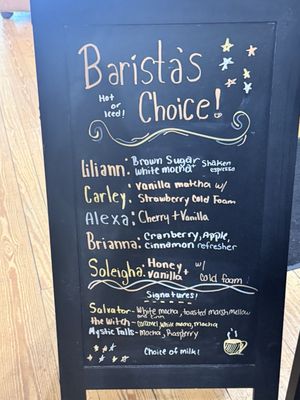 Barista's
Hot or Iced!
Choice!
Liliann: Brown Sugar white mocha shaken espresso
Carley: Vanilla matcha w/
Strawberry Cold Foam
Alexa: Cherry + Vanilla
Brianna: Cranberry, Apple,
Cinnamon refresher
Soleigha: Honey w/
Vanilla + Cold foam
Signatures!
Salvator- White mocha, toasted marshmellow
the Witch- Caramel, white mocha, mocha
Mystic Falls- Mocha, Raspberry
Choice of milk!